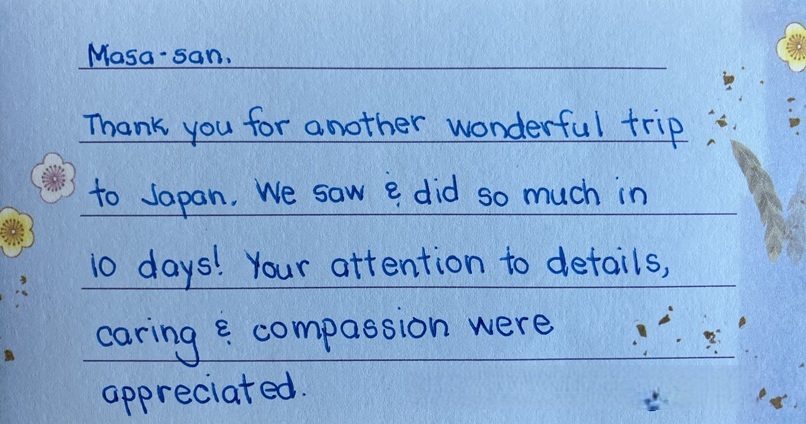 Masa-san,
Thank you for another wonderful trip
to Japan. We saw & did so much in
10 days! Your attention to details,
caring & compassion were
appreciated.